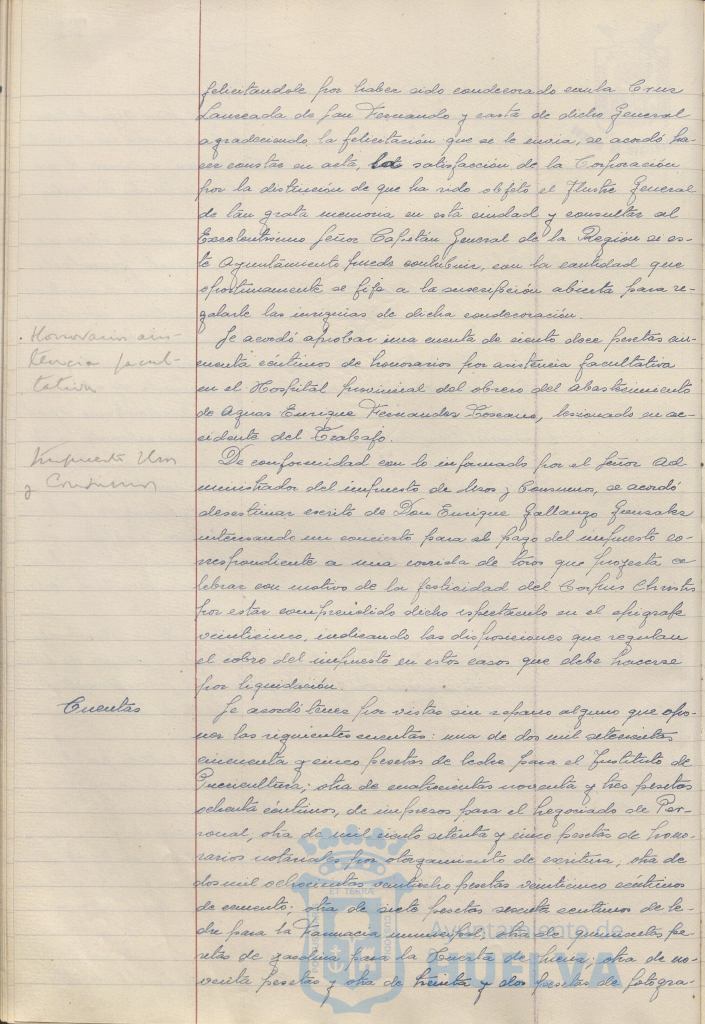 felicitandole por haber sido condecorado con la Cruz
Laureada de San Fernando y carta de dicho General
agradeciendo la felicitación que se le envia, se acordó ha-
cer constar en acta, la satisfacción de la Corporación
por la distinción de que ha sido objeto el Ilustre General
de tan grata memoria en esta ciudad y consultar al
Excelentisimo Señor Capitán General de la Región si es-
te Ayuntamiento puede contribuir, con la cantidad que
oportunamente se fije a la suscripción abierta para re-
galarle las insignias de dicha condecoración.
Honorarios asis-
tencia facul-
tativa
Se acordó aprobar una cuenta de ciento doce pesetas cin-
cuenta céntimos de honorarios por asistencia facultativa
en el Hospital provincial del obrero del abastecimiento
de Aguas Enrique Fernandez Toscano, lesionado en ac-
cidente del Trabajo.
Impuesto Usos
y Consumos
De conformidad con lo informado por el Señor Ad-
ministrador del impuesto de Usos y Consumos, se acordó
desestimar escrito de Don Enrique Gallango Gonzalez
interesando un concierto para el pago del impuesto co-
rrespondiente a una corrida de toros que proyecta ce-
lebrar con motivo de la festividad del Corpus Christis
por estar comprendido dicho espectáculo en el epigrafe
veinticinco, indicando las disposiciones que regulan
el cobro del impuesto en estos casos que debe hacerse
por liquidación.
Cuentas
Se acordó tener por vistas sin reparo alguno que opo-
ner las siguientes cuentas: una de dos mil setecientas
cincuenta y cinco pesetas de leche para el Instituto de
Puericultura; otra de cuatrocientas noventa y tres pesetas
ochenta céntimos, de impresos para el Negociado de Per-
sonal, otra de mil ciento setenta y cinco pesetas de hono-
rarios notariales por otorgamiento de escritura, otra de
dos mil ochocientas veintiocho pesetas veinticinco céntimos
de cemento; otra de siete pesetas sesenta centimos de le-
che para la Farmacia municipal; otra de quinientas pe-
setas de gasolina para la de otra de no-
venta pesetas y otra de treinta y dos pesetas de fotogra-
Ayuntamiento de
HUELVA